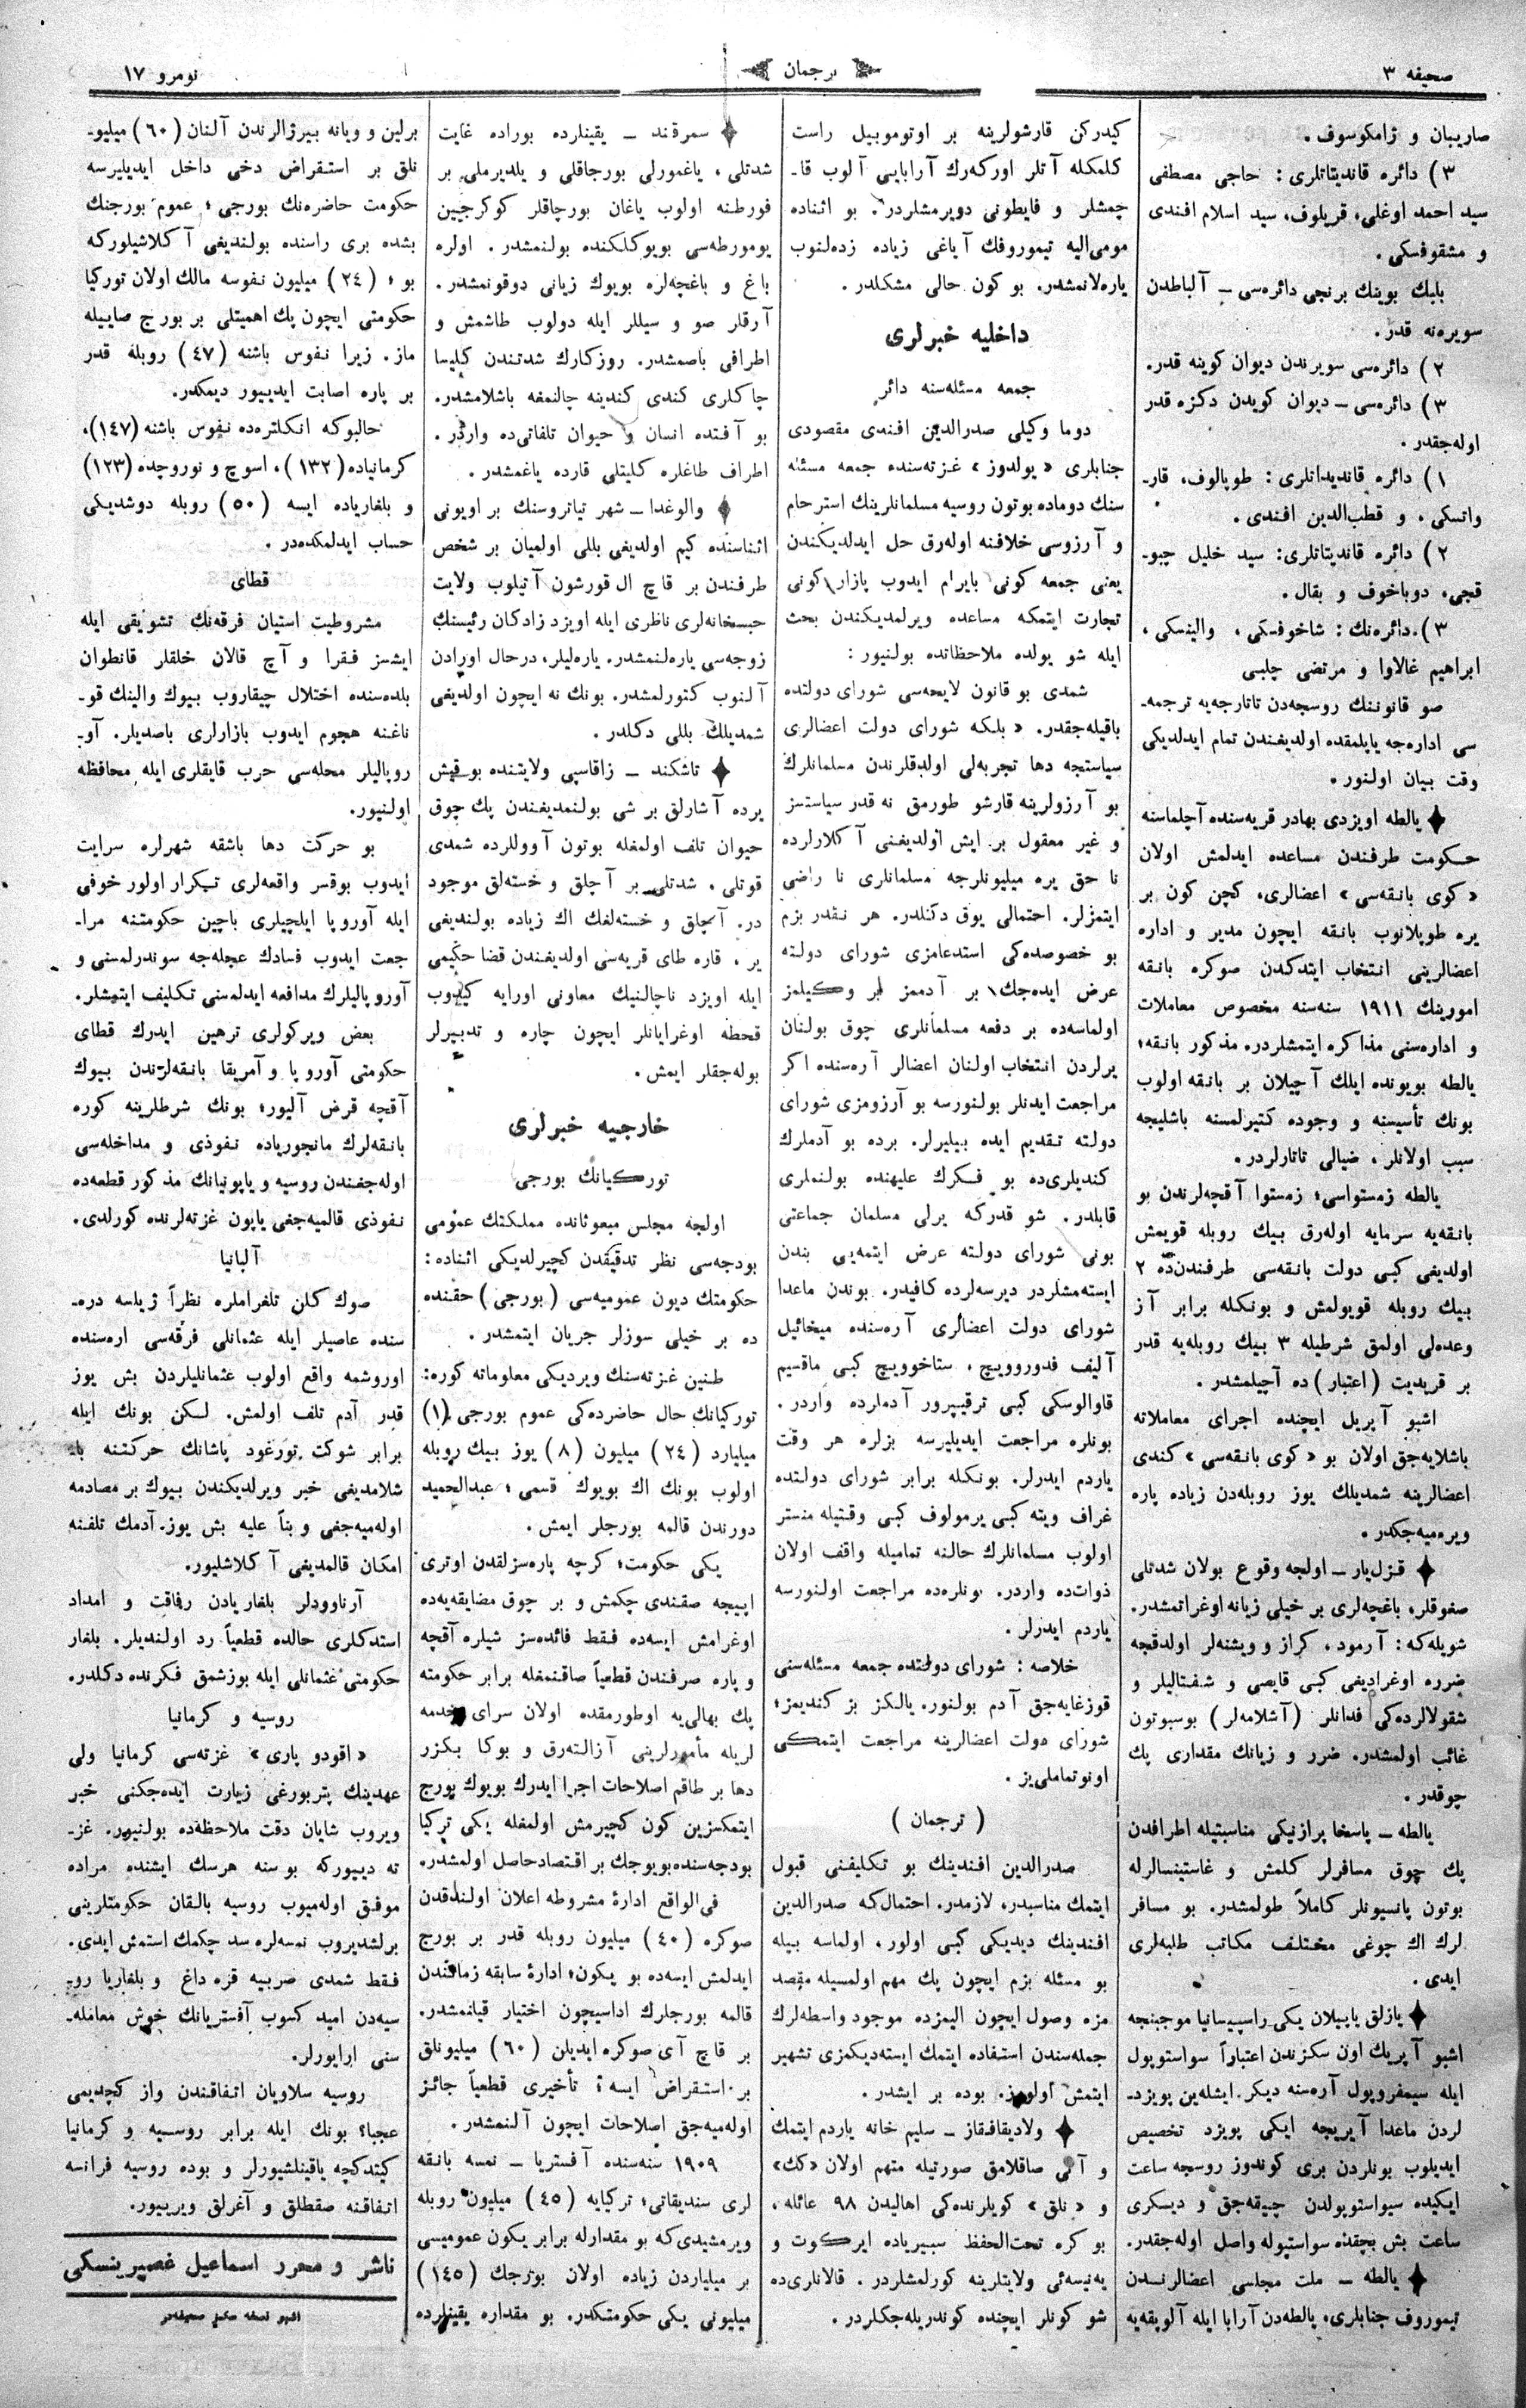 صحیفه ٣
ترجمان
نومرو ١٧
صاریبان و ژامکوسوف.
٣) دائره قاندیتاتلری: حاجی مصطفی
سید احمد اوغلی، قریلوف، سید اسلام افندی
و مشقوفسکی.
بلبك بوینك برنجی دائره‌سی ـ آلباطدن
سویره‌نه قدر.
٢) دائره‌سی سویرندن دیوان کوینه قدر.
٣) دائره‌سی ـ دیوان کویدن دکزه قدر
اوله‌جقدر.
١) دائره قاندیداتلری: طوپالوف، قار-
واتسکی، و قطب‌الدین افندی.
٢) دائره قاندیتاتلری: سید خلیل چبو-
قجی، دوباخوف و بقال.
٣). دائره‌نك: شاخوفسکی، والینسکی،
ابراهیم غالاوا و مرتضی چلبی
صو قانوننك روسجه‌دن تاتارجه‌یه ترجمه-
سی اداره‌جه یاپلمقده اولدیغندن تمام ایدلدیکی
وقت بیان اولنور.
یالطه اویزدی بهادر قریه‌سنده آچلماسنه
حکومت طرفندن مساعده ایدلمش اولان
«کوی بانقه‌سی» اعضالری، کچن کون بر
یره طوپلانوب بانقه ایچون مدیر و اداره
اعضالرینی انتخاب ایتدکدن صوکره بانقه
امورینك ١٩١١ سنه‌سنه مخصوص معاملات
و اداره‌سنی مذاکره ایتمشلردر. مذکور بانقه؛
یالطه بویونده ایلك آچیلان بر بانقه اولوب
بونك تأسیسنه و وجوده کتیرلمسنه باشلیجه
سبب اولانلر، ضیالی تاتارلردر.
یالطه زمستواسی؛ زمستوا آقچه‌لرندن بو
بانقه‌یه سرمایه اوله‌رق بیك روبله قویمش
اولدیغی کبی دولت بانقه‌سی طرفندن‌ده ٢
بیك روبله قویولمش و بونکله برابر آز
وعده‌لی اولمق شرطیله ٣ بیك روبله‌یه قدر
بر قریدیت (اعتبار) ده آچیلمشدر.
اشبو آپریل ایچنده اجرای معاملاته
باشلایه‌جق اولان بو «کوی بانقه‌سی» کندی
اعضالرینه شمدیلك یوز روبله‌دن زیاده پاره
ویره‌میه‌جکدر.
قزل‌یار ـ اولجه وقوع بولان شدتلی
صغوقلر، باغچه‌لری بر خیلی زیانه اوغراتمشدر.
شویله‌که: آرمود، کراز و ویشنه‌لر اولدقچه
ضرره اوغرادیغی کبی قایصی و شفتالیلر و
شقولالرده‌کی فدانلر (آشلامه‌لر) بوسبوتون
غائب اولمشدر. ضرر و زیانك مقداری پك
چوقدر.
یالطه ـ پاسخا پرازنیکی مناسبتیله اطرافدن
پك چوق مسافرلر کلمش و غاستینسالرله
بوتون پانسیونلر کاملاً طولمشدر. بو مسافر
لرك اك چوغی مختلف مکاتب طلبه‌لری
ایدی.
یازلق یاپیلان یکی راسپیسانیا موجبنجه
اشبو آپریك اون سکزندن اعتباراً سواستوپول
ایله سیمفروپول آره‌سنه دیکر. ایشله‌ین پویزد-
لردن ماعدا آیریجه ایکی پویزد تخصیص
ایدیلوب بونلردن بری کوندوز روسجه ساعت
ایکیده سیواستوپولدن چیقه‌جق و دیکری
ساعت بش بچقده سواستپوله واصل اوله‌جقدر.
یالطه ـ ملت مجلسی اعضالرنـدن
تیموروف جنابلری، یالطه‌دن آرابا ایله آلوپقه‌یه
کیدرکن قارشولرینه بر اوتوموبیل راست
کلمکله آتلر اورکه‌رك آرابایی آلوب قا-
چمشلر و فایطونی دویرمشلردر. بو اثناده
مومی‌الیه تیموروفك آیاغی زیاده زده‌لنوب
یاره‌لانمشدر. بو کون حالی مشکلدر.
داخلیه خبرلری
جمعه مسئله‌سنه دائر
دوما وکیلی صدرالدین افندی مقصودی
جنابلری «یولدوز» غزته‌سنده جمعه مسئله
سنك دوماده بوتون روسیه مسلمانلرینك استرحام
و آرزوسی خلافنه اوله‌رق حل ایدلدیکندن
یعنی جمعه کونی بایرام ایدوب پازار کونی
تجارت ایتمکه مساعده ویرلمدیکندن بحث
ایله شو یولده ملاحظاتده بولنیور:
شمدی بو قانون لایحه‌سی شورای دولتده
باقیله‌جقدر. «بلکه شورای دولت اعضالری
سیاستجه دها تجربه‌لی اولدقلرندن مسلمانلرك
بو آرزولرینه قارشو طورمق نه قدر سیاستسز
و غیر معقول بر ایش اولدیغنی آکلارلرده
نا حق یره میلیونلرجه مسلمانلری نا راضی
ایتمزلر. احتمالی یوق دکلدر. هر نقدر بزم
بو خصوصده‌کی استدعامزی شورای دولته
عرض ایده‌جك بر آدممز بر وکیلمز
اولماسه‌ده بر دفعه مسلمانلری چوق بولنان
یرلردن انتخاب اولنان اعضالر آره‌سنده اکر
مراجعت ایدنلر بولنورسه بو آرزومزی شورای
دولته تقدیم ایده بیلیرلر. برده بو آدملرك
کندیلری‌ده بو فکرك علیهنده بولنملری
قابلدر. شو قدرکه یرلی مسلمان جماعتی
بونی شورای دولته عرض ایتمه‌یی بندن
ایسته‌مشلردر دیرسه‌لرده کافیدر. بوندن ماعدا
شورای دولت اعضالری آره‌سنده میخائیل
آلیف فدوروویچ، ستاخوویچ کبی ماقسیم
قاوالوسکی کبی ترقیپرور آدملرده واردر.
بونلره مراجعت ایدیلیرسه بزلره هر وقت
یاردم ایدرلر. بونکله برابر شورای دولتده
غراف ویته کبی یرمولوف کبی وقتیله منستر
اولوب مسلمانلرك حالنه تمامیله واقف اولان
ذوات‌ده واردر. بونلره‌ده مراجعت اولنورسه
یاردم ایدرلر.
خلاصه: شورای دولتده جمعه مسئله‌سنی
قوزغایه‌جق آدم بولنور. یالکز بز کندیمز؛
شورای دولت اعضالرینه مراجعت ایتمکی
اونوتماملی‌یز.
(ترجمان)
صدرالدین افندینك بو تکلیفنی قبول
ایتمك مناسبدر، لازمدر. احتمال‌که صدرالدین
افندینك دیدیکی کبی اولور، اولماسه بیله
بو مسئله بزم ایچون پك مهم اولمسیله مقصد
مزه وصول ایچون الیمزده موجود واسطه‌لرك
جمله‌سندن استفاده ایتمك ایسته‌دیکمزی تشهیر
ایتمش اولورز. بوده بر ایشدر.
ولادیقافقاز ـ سلیم خانه یاردم ایتمك
و آنی صاقلامق صورتیله متهم اولان «کك»
و «نلق» کویلرنده‌کی اهالیدن ٩٨ عائله،
بو کره تحت‌الحفظ سبیریاده ایرکوت و
یه‌نیسه‌ئی ولایتلرینه کورلمشلردر. قالانلری‌ده
شو کونلر ایچنده کوندریله‌جکلردر.
سمرقند ـ یقینلرده بوراده غایت
شدتلی، یاغمورلی بورجاقلی و یلدیرملی بر
فورطنه اولوب یاغان بورچاقلر کوکرجین
یومورطه‌سی بویوکلکنده بولنمشدر. اولره
باغ و باغچه‌لره بویوك زیانی دوقونمشدر.
آرقلر صو و سیللر ایله دولوب طاشمش و
اطرافی باصمشدر. روزکارك شدتندن کلیسا
چاکلری کندی کندینه چالنمغه باشلامشدر.
بو آفتده انسان و حیوان تلفاتی‌ده واردر.
اطراف طاغلره کلیتلی قارده یاغمشدر.
والوغدا ـ شهر تیاتروسنك بر اویونی
اثناسنده کیم اولدیغی بللی اولمیان بر شخص
طرفندن بر قاچ ال قورشون آتیلوب ولایت
حبسخانه‌لری ناظری ایله اویزد زادکان رئیسنك
زوجه‌سی یاره‌لنمشدر. یاره‌لیلر، درحال اورادن
آلنوب کتورلمشدر. بونك نه ایچون اولدیغی
شمدیلك بللی دکلدر.
تاشکند ـ زاقاسپی ولایتنده بو قیش
یرده آشارلق بر شی بولنمدیغندن پك چوق
حیوان تلف اولمغله بوتون آووللرده شمدی
قوتلی، شدتلی بر آچلق و خسته‌لق موجود
در. آچلق و خسته‌لغك اك زیاده بولندیغی
یر، قاره طای قریه‌سی اولدیغندن قضا حکیمی
ایله اویزد ناچالنیك معاونی اورایه کیدوب
قحطه اوغرایانلر ایچون چاره و تدبیرلر
بوله‌جقلر ایمش.
خارجیه خبرلری
تورکیانك بورجی
اولجه مجلس مبعوثانده مملکتك عمومی
بودجه‌سی نظر تدقیقدن کچیرلدیکی اثناده:
حکومتك دیون عمومیه‌سی (بورجی) حقنده
ده بر خیلی سوزلر جریان ایتمشدر.
طنین غزته‌سنك ویردیکی معلوماته کوره:
تورکیانك حال حاضرده‌کی عموم بورجی (١)
میلیارد (٢٤) میلیون (٨) یوز بیك روبله
اولوب بونك اك بویوك قسمی؛ عبدالحمید
دورندن قالمه بورجلر ایمش.
یکی حکومت؛ کرچه پاره‌سزلقدن اوتری
اپیجه صقندی چکمش و بر چوق مضایقه‌یه‌ده
اوغرامش ایسه‌ده فقط فائده‌سز شیلره آقچه
و پاره صرفندن قطعیاً صاقنمغله برابر حکومته
پك بهالی‌یه اوطورمقده اولان سرای خدمه
لریله مأمورلرینی آزالته‌رق و بوکا بکزر
دها بر طاقم اصلاحات اجرا ایدرك بویوك بورج
ایتمکسزین کون کچیرمش اولمغله یکی ترکیا
بودجه‌سنده بویوجك بر اقتصاد حاصل اولمشدر.
فی‌الواقع ادارهٔ مشروطه اعلان اولندقدن
صوکره (٤٠) میلیون روبله قدر بر بورج
ایدلمش ایسه‌ده بو یکون؛ ادارهٔ سابقه زماننـدن
قالمه بورجلرك اداسیچون اختیار قیلنمشدر.
بر قاچ آی صوکره ایدیلن (٦٠) میلیونلق
بر استقراض ایسه؛ تأخیری قطعیاً جائز
اوله‌میه‌جق اصلاحات ایچون آلنمشدر.
١٩٠٩ سنه‌سنده آفستریا ـ نمسه بانقه
لری سندیقاتی؛ ترکیایه (٤٥) میلیون روبله
ویرمشیدی‌که بو مقدارله برابر یکون عمومیسی
بر میلیاردن زیاده اولان بورجك (١٤٥)
میلیونی یکی حکومتکدر. بو مقداره یقینلرده
برلین و ویانه بیرژالرندن آلنان (٦٠) میلیو-
نلق بر استقراض دخی داخل ایدیلیرسه
حکومت حاضره‌نك بورجی؛ عموم بورجنك
بشده بری راسنده بولندیغی آکلاشیلورکه
بو؛ (٢٤) میلیون نفوسه مالك اولان تورکیا
حکومتی ایچون پك اهمیتلی بر بورج صاییله
ماز. زیرا نفوس باشنه (٤٧) روبله قدر
بر پاره اصابت ایدییور دیمکدر.
حالبوکه انکلتره‌ده نفوس باشنه (١٤٧)،
کرمانیاده (١٣٢)، اسوچ و نوروچده (١٢٣)
و بلغاریاده ایسه (٥٠) روبله دوشدیکی
حساب ایدلمکده‌در.
قطای
مشروطیت استیان فرقه‌نك تشویقی ایله
ایشسز فقرا و آچ قالان خلقلر قانطوان
بلده‌سنده اختلال چیقاروب بیوك والینك قو-
ناغنه هجوم ایدوب بازارلری باصدیلر. آو-
روپالیلر محله‌سی حرب قایقلری ایله محافظه
اولنیور.
بو حرکت دها باشقه شهرلره سرایت
ایدوب بوقسر واقعه‌لری تکرار اولور خوفی
ایله آوروپا ایلچیلری باچین حکومتنه مرا-
جعت ایدوب فسادك عجله‌جه سوندرلمسنی و
آوروپالیلرك مدافعه ایدلمه‌سنی تکلیف ایتمشلر.
بعض ویرکولری ترهین ایدرك قطای
حکومتی آوروپا و آمریقا بانقه‌لرندن بیوك
آقچه قرض آلیور؛ بونك شرطلرینه کوره
بانقه‌لرك مانجوریاده نفوذی و مداخله‌سی
اوله‌جغندن روسیه و یاپونیانك مذکور قطعه‌ده
نفوذی قالمیه‌جغی یاپون غزته‌لرنده کورلدی.
آلبانیا
صوك کلن تلغراملره نظراً ژیلسه دره-
سنده عاصیلر ایله عثمانلی فرقه‌سی اره‌سنده
اوروشمه واقع اولوب عثمانلیلردن بش یوز
قدر آدم تلف اولمش. لکن بونك ایله
برابر شوکت تورغود پاشانك حرکتنه با-
شلامدیغی خبر ویرلدیکندن بیوك بر مصادمه
اوله‌میه‌جغی و بناً علیه بش یوز آدمك تلفنه
امکان قالمدیغی آکلاشلیور.
آرناوودلر بلغاریادن رفاقت و امداد
استدکلری حالده قطعیاً رد اولندیلر. بلغار
حکومتی عثمانلی ایله بوزشمق فکرنده دکلدر.
روسیه و کرمانیا
«اقودو پاری» غزته‌سی کرمانیا ولی
عهدینك پتربورغی زیارت ایده‌جکنی خبر
ویروب شایان دقت ملاحظه‌ده بولنیور. غز-
ته دییورکه بو سنه هرسك ایشنده مراده
موفق اوله‌میوب روسیه بالقان حکومتلرینی
برلشدیروب نمسه‌لره سد چکمك استمش ایدی.
فقط شمدی صربیه قره داغ و بلغاریا رو-
سیه‌دن امید کسوب آفستریانك خوش معامله-
سنی ارایورلر.
روسیه سلاویان اتفاقندن واز کچدیمی
عجبا؟ بونك ایله برابر روسیه و کرمانیا
کیتدکچه یاقینلشیورلر و بوده روسیه فرانسه
اتفاقنه صقطلق و آغرلق ویرییور.
ناشر و محرر اسماعیل غصپرینسکی
اشبو نسخه سکز صحیفه‌در